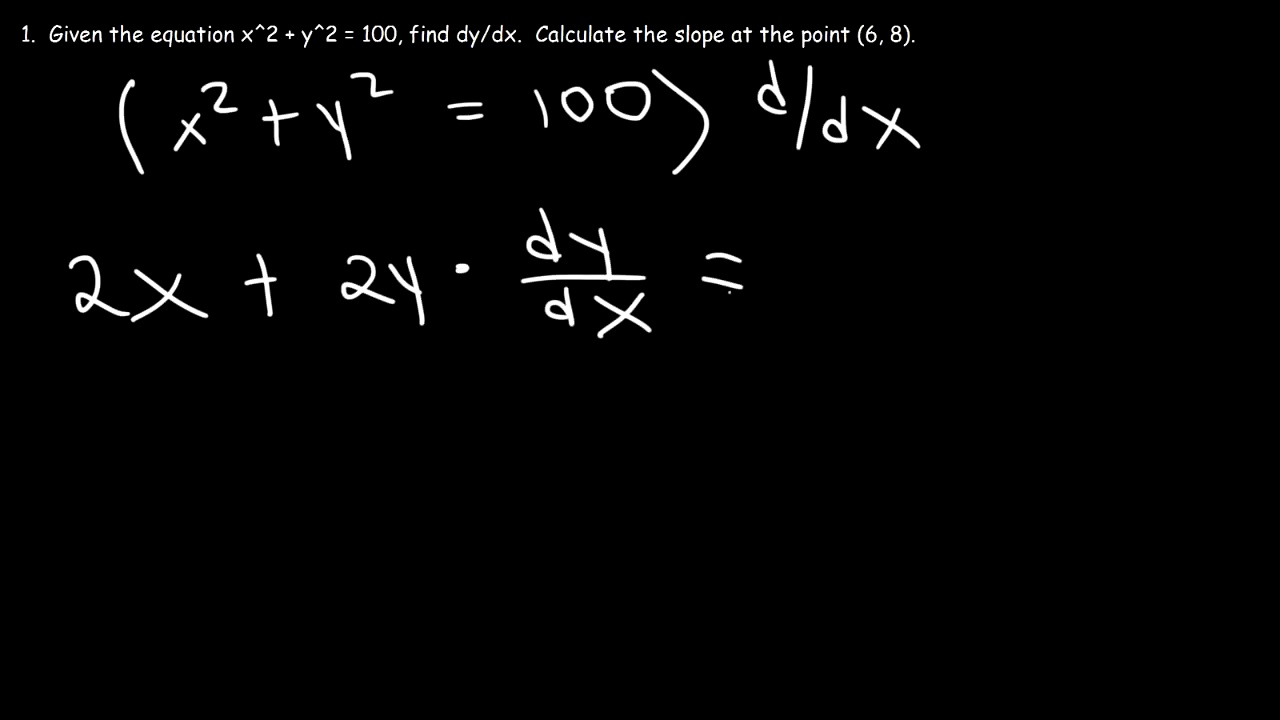 1. Given the equation x^2 + y^2 = 100, find dy/dx. Calculate the slope at the point (6, 8).
(x² + y² = 100) d/dx
2x + 2y · dy/dx =